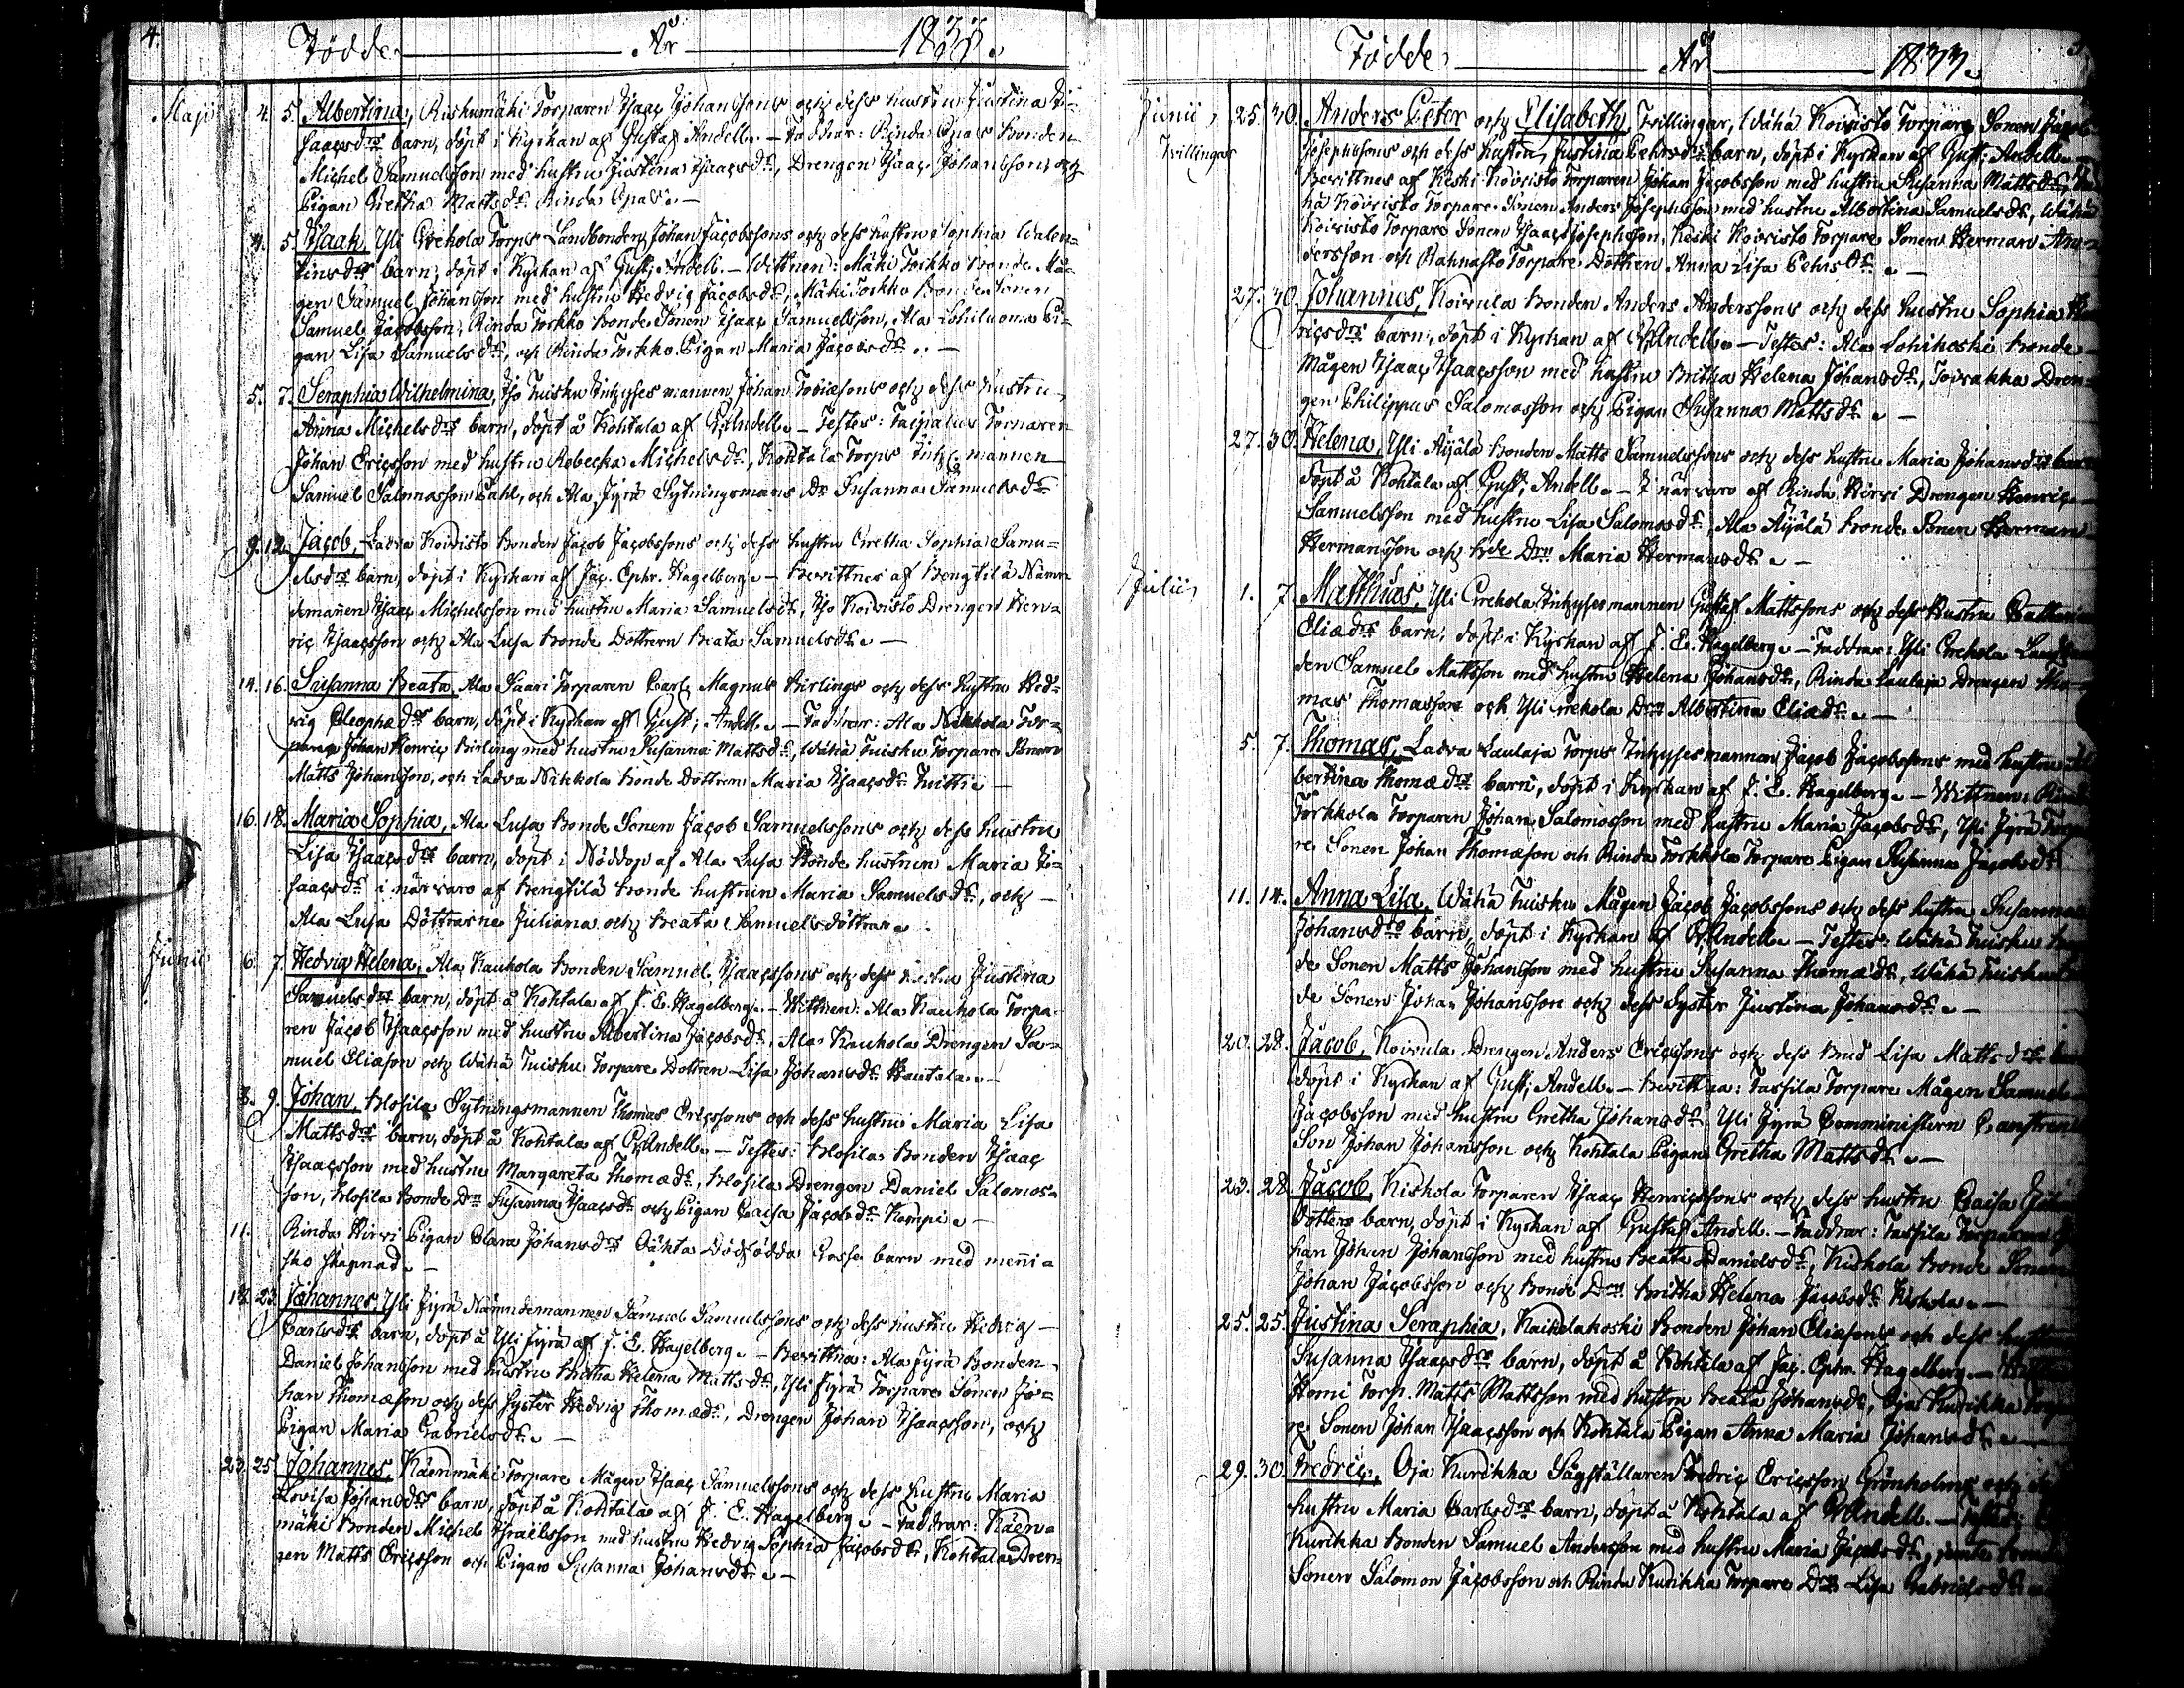 4.
Födde År 1833.
Maji 4. 5. Albertina, Riskumäki Torparen Isaac Johanssons och dess hustru Justina I-
saacsdrs barn, döpt i Kyrkan af Gustaf Andell. – Faddrar: Rinda Bonden
Michel Samuelsson med hustru Justina Isaacsdr, Drengen Isaac Johansson, och
Pigan Gretha Mattsdr Rinda –
4. 5. Isaak, Yli Grekola Torps Landbonden Johan Jacobssons och dess hustru Sophia Walen-
tinsdrs barn, döpt i Kyrkan af Gust; Andell. – Wittnen: Mäki Torkko Bonde Må-
gen Samuel Johansson med hustru Hedvig Jacobsdr, Mäki Torkko Bonde Sonen
Samuel Jacobsson, Rinda Torkko Bonde Sonen Isaac Samuelsson, Ala Lohiluoma Pi-
gan Lisa Samuelsdr, och Rinda Torkko Pigan Maria Jacobsdr. –
5. 7. Seraphia Wilhelmina, Iso Tuisku Inhysesmannen Johan Tobiæsons och dess hustru
Anna Michelsdrs barn, döpt å Kohtala af G. Andell. – Testes: Torparen
Johan Ericsson med hustru Rebecka Michelsdr, Kohtala Torps Inh: mannen
Samuel Salomosson Pahl, och Ala Jyrä Sytningsmans Dr Susanna Samuelsdr
9. 12. Jacob, Ladva Koivisto Bonden Jacob Jacobssons och dess hustru Gretha Sophia Samu-
elsdrs barn, döpt i Kyrkan af Jac. Ephr. Hagelberg. – Bevittnes af Bengtilä Nämn-
demannen Isaac Michelsson med hustru Maria Samuelsdr, Iso Koivisto Drengen Hen-
ric Isaacsson och Ala Lusa Bonde Dottren Beata Samuelsdr. –
14. 16. Susanna Beata, Ala Saari Torparen Carl Magnus Birlings och dess hustru Hed-
vig Cleophædrs barn, döpt i Kyrkan af Gust; Andell. – Faddrar: Ala Nikkola Tor-
paren Johan Henric Birling med hustru Susanna Mattsdr, Wähä Tuisku Torpare Sonen
Matts Johansson, och Ladva Nikkola Bonde Dottren Maria Isaacsdr –
16. 18. Maria Sophia, Ala Lusa Bonde Sonen Jacob Samuelssons och dess hustru
Lisa Isaacsdrs barn, döpt i Nöddop af Ala Lusa Bonde hustrun Maria I-
saacsdr i närvaro af Bengtilä Bonde hustrun Maria Samuelsdr, och –
Ala Lusa Döttrarne Juliana och Beata Samuelsdöttrar.
Junii 6. 7. Hedvig Helena, Ala Kauhola Bonden Samuel Isaacssons och dess hustru Justina
Samuelsdrs barn, döpt å Kohtala af J. E. Hagelberg. – Wittnen: Ala Kauhola Torpa-
ren Jacob Isaacsson med hustru Albertina Jacobsdr, Ala Kauhola Drengen Sa-
muel Eliason och Wähä Tuisku Torpare Dottren Lisa Johansdr Hautala. –
8. 9. Johan, Blosila Sytningsmannen Thomas Ericssons och dess hustru Maria Lisa
Mattsdrs barn, döpt å Kohtala af G. Andell. – Testes: Blosila Bonden Isaac
Isaacsson med hustru Margareta Thomædr, Blosila Drengen Daniel Salomos-
son, Blosila Bonde Drn Susanna Isaacsdr och Pigan Caisa Jacobsdr Kempi. –
11. Rinda Hirvi Pigan Clara Johansdrs Oäkta Dödfödda Gosse barn med menni-
sko skapnad. –
18. 23. Johannes, Yli Jyrä Nämndemannen Samuel Samuelssons och dess hustru Hedvig –
Carlsdrs barn, döpt å Yli Jyrä af J. E. Hagelberg. – Bevittna: Ala Jyrä Bonden
Daniel Johansson med hustru Britha Helena Mattsdr, Yli Jyrä Torpare Sonen Jo-
han Thomæson och dess Syster Hedvig Thomædr, Drengen Johan Isaacsson, och
Pigan Maria Gabrielsdr. –
23. 25. Johannes, Käenmäki Torpare Mågen Isaac Samuelssons och dess hustru Maria
Lovisa Johansdrs barn, döpt å Kohtala af J. E. Hagelberg. – Faddrar: Käen-
mäki Bonden Michel Israelsson med hustru Hedvig Sophia Jacobsdr, Kohtala Dren-
gen Matts Ericsson och Pigan Susanna Johansdr. –
Födde År 1833.
Junii 25. 30. Anders Peter och Elisabeth, Tvillingar, Wähä Koivisto Torpare Sonen Jacob
Tvillingar Josephssons och dess hustru, Justina Pehrsdrs barn, döpt i Kyrkan af Gust; Andell. –
Bevittnes af Keski Koivisto Torparen Johan Jacobsson med hustru Susanna Mattsdr, Wä-
hä Koivisto Torpare Sonen Anders Josephsson med hustru Albertina Samuelsdr, Wähä
Koivisto Torpare Sonen Isaac Josephsson, Keski Koivisto Torpare Sonen Herman An-
dersson och Rahnasto Torpare Dottren Anna Lisa Pehrsdr. –
27. 30. Johannes, Koivula Bonden Anders Anderssons och dess hustru Sophia Hen-
ricsdrs barn, döpt i Kyrkan af G. Andell. – Testes: Ala Lohikoski Bonde
Mågen Isaac Isaacsson med hustru Britha Helena Johansdr, Dren-
gen Philippus Salomosson och Pigan Susanna Mattsdr. –
27. 30. Helena, Yli Äyälä Bonden Matts Samuelssons och dess hustru Maria Johansdrs barn
döpt å Kohtala af Gust; Andell. – I närvaro af Rinda Hirvi Drengen Henric
Samuelsson med hustru Lisa Salomosdr, Ala Äyälä Bonde Sonen Herman
Hermansson och Bde Drn Maria Hermansdr. –
Julii 1. 7. Matthias, Yli Grekola Inhysesmannen Gustaf Mattssons och dess Hustru Catharina
Eliædrs barn, döpt i Kyrkan af J. E. Hagelberg. – Faddrar: Yli Grekola Landbon-
den Samuel Mattsson med hustru Helena Johansdr, Rinda Laulaja Drengen Tho-
mas Thomasson och Yli Grekola Drn Albertina Eliædr. –
5. 7. Thomas, Ladva Laulaja Torps Inhysesmannen Jacob Jacobssons med hustru Al-
bertina Thomædrs barn, döpt i Kyrkan af J. E. Hagelberg. – Wittnen: Rinda
Torkkola Torparen Johan Salomosson med hustru Maria Jacobsdr, Yli Jyrä Torpa-
re Sonen Johan Thomæson och Rinda Torkkola Torpare Pigan Susanna Jacobsdr
11. 14. Anna Lisa, Wähä Tuisku Mågen Jacob Jacobssons och dess hustru Susanna
Johansdrs barn, döpt i Kyrkan af G. Andell. – Testes: Wähä Tuisku Bon-
de Sonen Matts Johansson med hustru Susanna Thomædr, Wähä Tuisku Bon-
de Sonen Johan Johansson och dess Syster Justina Johansdr. –
20. 28. Jacob, Koivula Drengen Anders Ericssons och dess Brud Lisa Mattsdrs barn
döpt i Kyrkan af Gust; Andell. – Bevittna: Tassila Torpare Mågen Samuel
Jacobsson med hustru Gretha Johansdr, Yli Jyrä Comministern
Son Johan Johansson och Kohtala Pigan Gretha Mattsdr. –
23. 28. Jacob, Kiskola Torparen Isaac Henricssons och dess hustru Caisa
dotters barn, döpt i Kyrkan af Gustaf Andell. – Faddrar: Tassila Torparen Jo-
han Johan Johansson med hustru Beata Danielsdr, Kiskola Bonde Sonen
Johan Jacobsson och Bonde Drn Britha Helena Jacobsdr Kiskola. –
25. 25. Justina Seraphia, Kaihelakoski Bonden Johan Eliasons och dess hustru
Susanna Isaacsdrs barn, döpt å Kohtala af Jac. Ephr. Hagelberg. –
Homi Torp. Matts Mattsson med hustru Beata Johansdr, Oja Kurikka Torpa-
re Sonen Johan Isaacsson och Kohtala Pigan Anna Maria Johansdr. –
29. 30. Fredric, Oja Kurikka Sågställaren Fredric Ericsson Grönholms och
hustru Maria Carlsdrs barn, döpt å Kohtala af G. Andell. – Testes:
Kurikka Bonden Samuel Andersson med hustru Maria Jacobsdr, Bonde
Sonen Salomon Jacobsson och Rinda Kurikka Torpare Drn Lisa Gabrielsdr